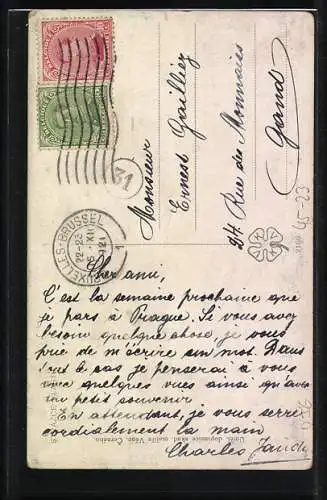 Monsieur
Ernest Gailliez
24 Rue des Monnaies
Gand
31
BRUXELLES-BRUSSEL
1
22-23
XII
Cher ami,
C'est la semaine prochaine que
je pars à Prague. Si vous avez
besoin quelque chose, je vous
prie de m'écrire un mot. Dans
tout le cas je penserai à vous
avec quelques vues ainsi qu'avec
un petit souvenir
En attendant, je vous serre
cordialement la main
Charles
45-23